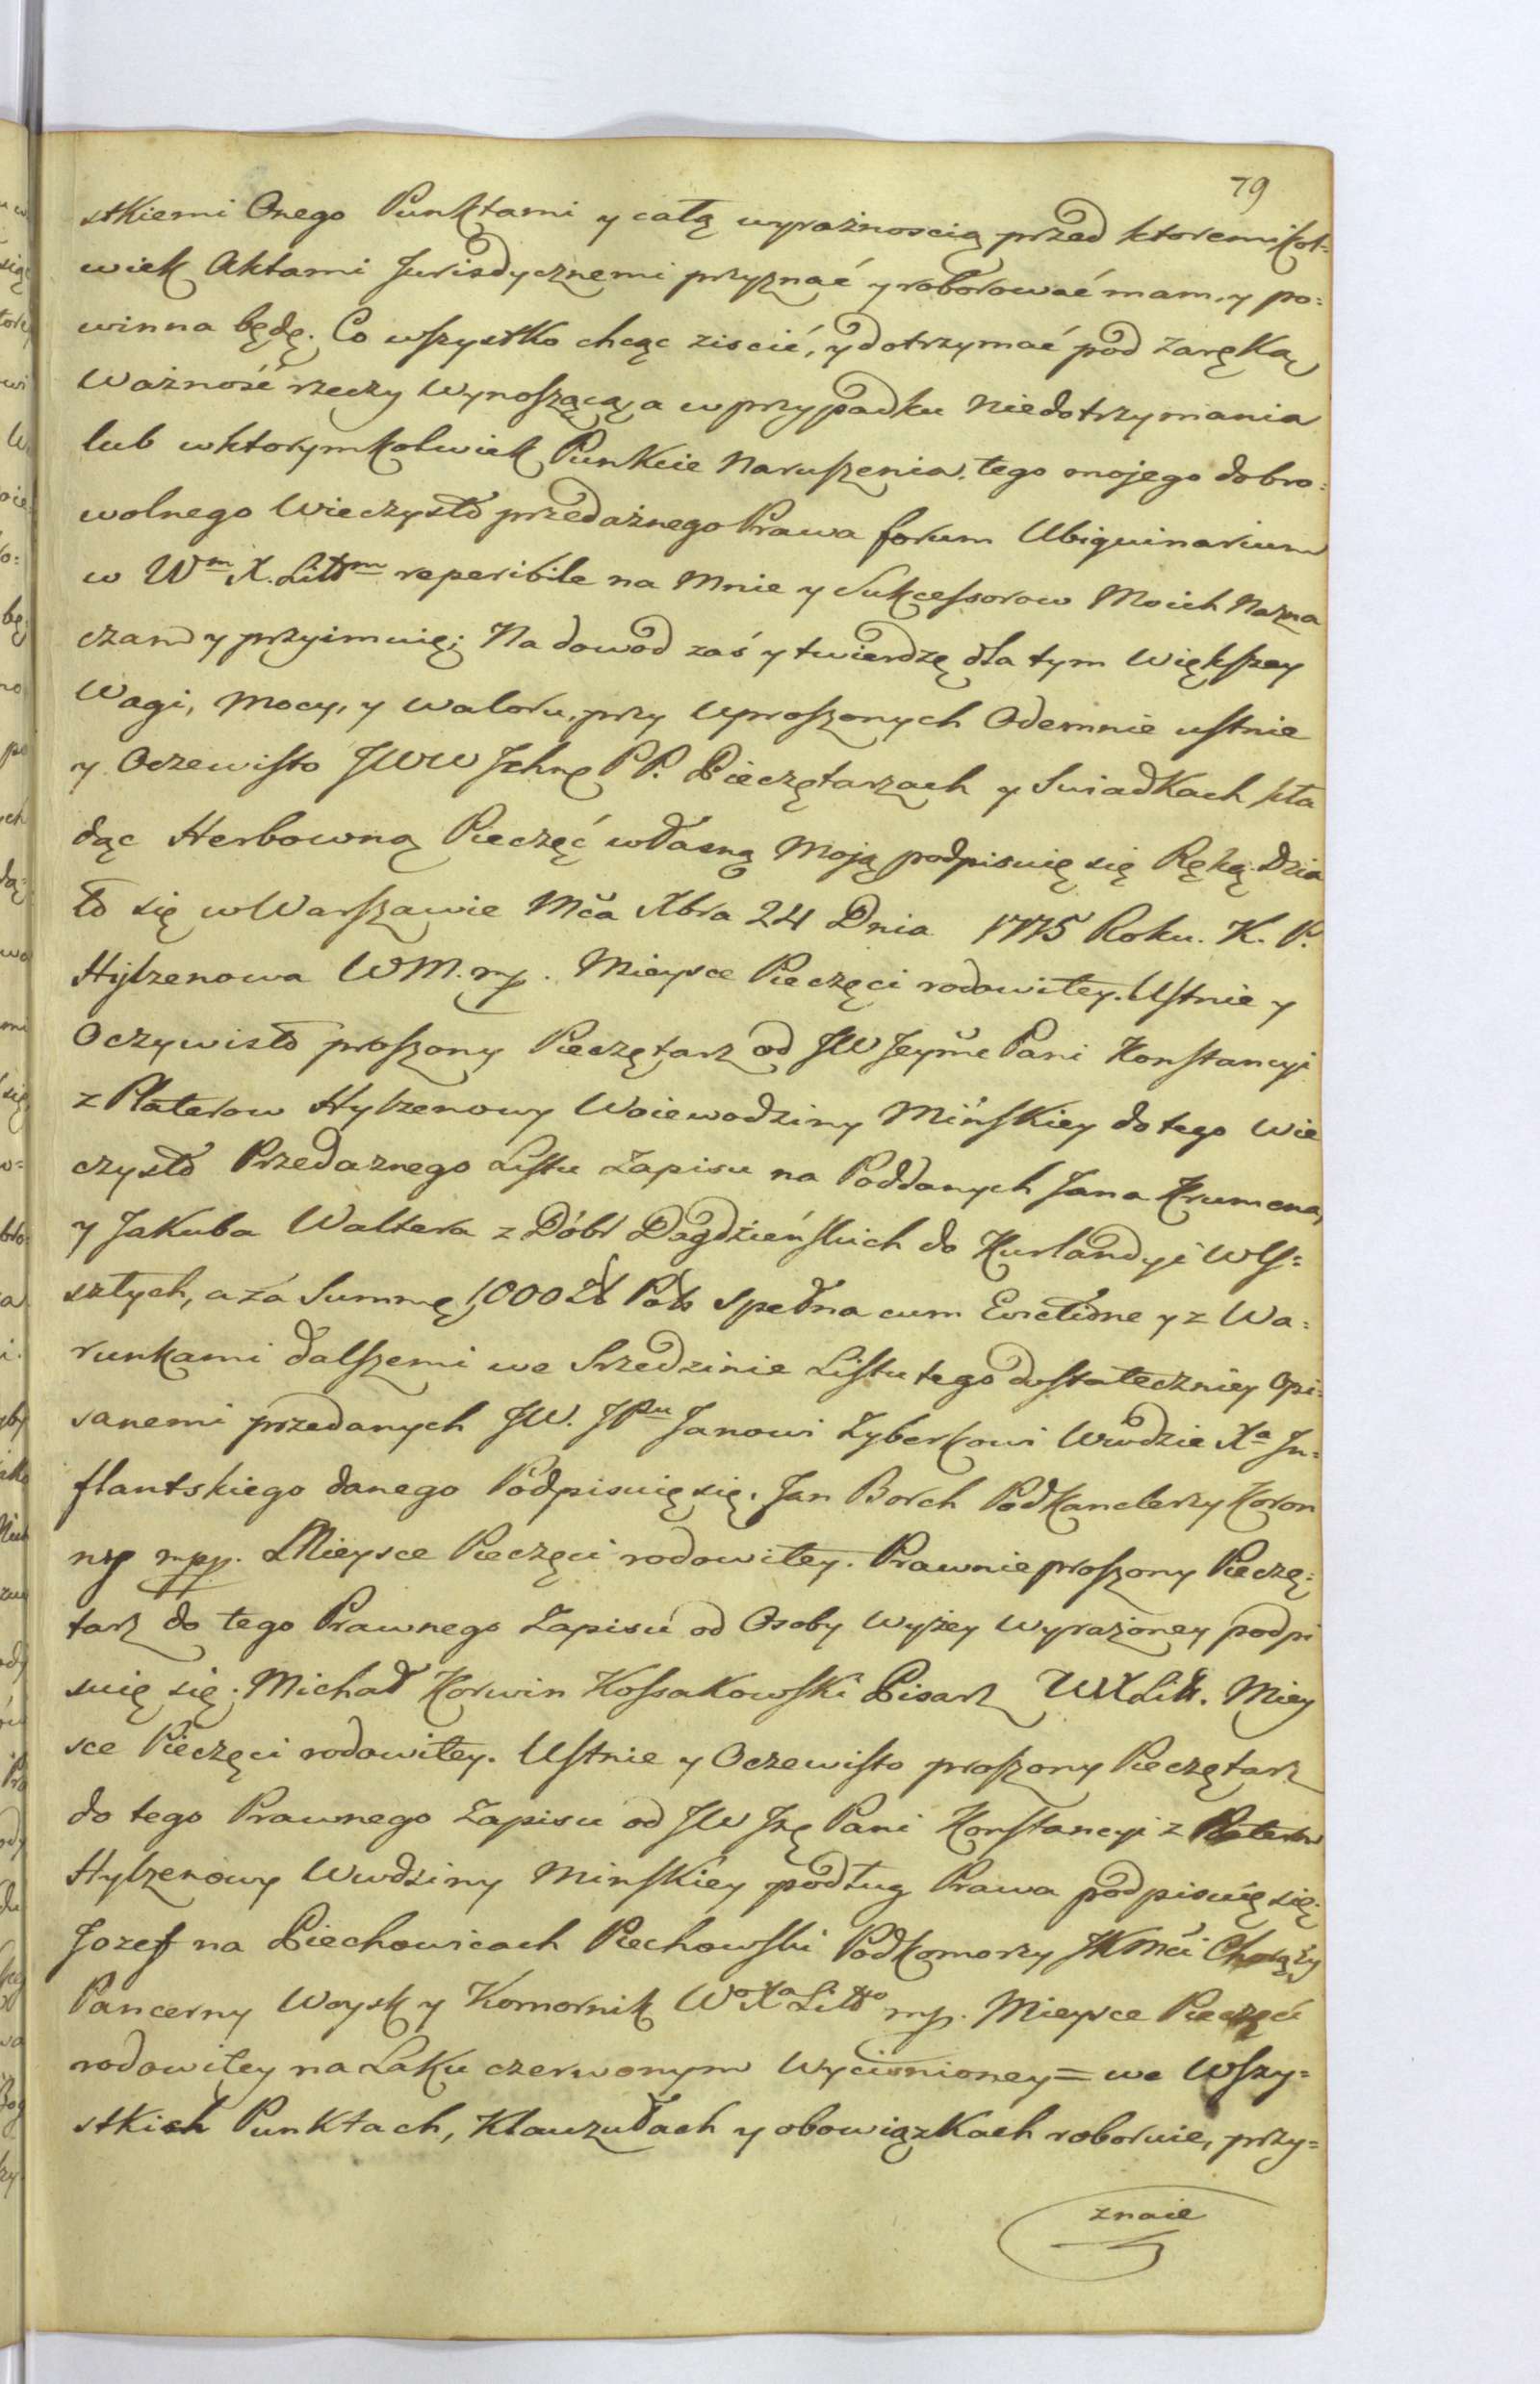 79
stkiemi Onego Punktami y całą wyraźnoscią przed ktoremikol=
wiek Aktami Jurisdycznemi przyznać y roborować mam, y po=
winna będę. Co wszystko chcąc ziscić, y dotrzymać pod zaręką
Ważność rzeczy Wynoszącą, a w przypadku Niedotrzymania
lub wktorymkolwiek Punkcie Naruszenia, tego mojego dobro=
wolnego Wieczysto przedażnego Prawa forum Ubiquinarium
w Wm X. Littm reperibile na Mnie y Sukcessorow Moich Nazna
czam y przyimuię; Na dowod zaś y twierdzę dla tym Większey
Wagi, Mocy, y Waloru, przy Uproszonych Odemnie ustnie
y Oczewisto JWW Ichmę PP. Pieczętarzach y Swiadkach kła
dąc Herbowną Pieczęć własną Moją podpisuię się Ręką. Dzia
ło się w Warszawie Mča Xbra 24 Dnia 1775 Roku. K. P.
Hylzenowa WM. mp. Mieysce Pieczęci rodowitey. Ustnie y
Oczywisto proszony Pieczętarz od JW Jeymč Pani Konstancyi
z Platerow Hylzenowy Woiewodziny Mińskiey do tego Wie
czysto Przedaznego Listu Zapisu na Poddanych Jana Krumena,
y Jakuba Waltera z Dóbr Dagdzieńskich do Kurlandyi Wys=
szłych, a za Summę 1,000 Zł Pols Spełna cum Evictione y z Wa=
runkami dalszemi we Srzedzinie Listu tego dostateczniey Opi=
sanemi przedanych JW. JPu Janowi Zyberkowi Wwdzie Xa In=
flantskiego danego Podpisuię się. Jan Borch Podkanclerzy Koron
ny mpp. Mieysce Pieczęci rodowitey. Prawnie proszony Pieczę=
tarz do tego Prawnego Zapisu od Osoby Wyżey Wyrażoney podpi
suię się. Michał Korwin Kossakowski Pisarz WXLitt. Miey
sce Pieczęci rodowitey. Ustnie y Oczewisto proszony Pieczętarz
do tego Prawnego Zapisu od JW Pani Konstancyi z Platerow
Hylzenowy Wwdziny Minskiey podług Prawa podpisuię się.
Jozef na Piechowicach Piechowski Podkomorzy JKMći Chorąży
Pancerny Woysk y Komornik Wo Xa Litto mp. Mieysce Pieczęci
rodowitey na Laku czerwonym Wyciśnioney = we Wszy=
stkich Punktach, Klauzułach y obowiązkach roboruie, przy=
znaie